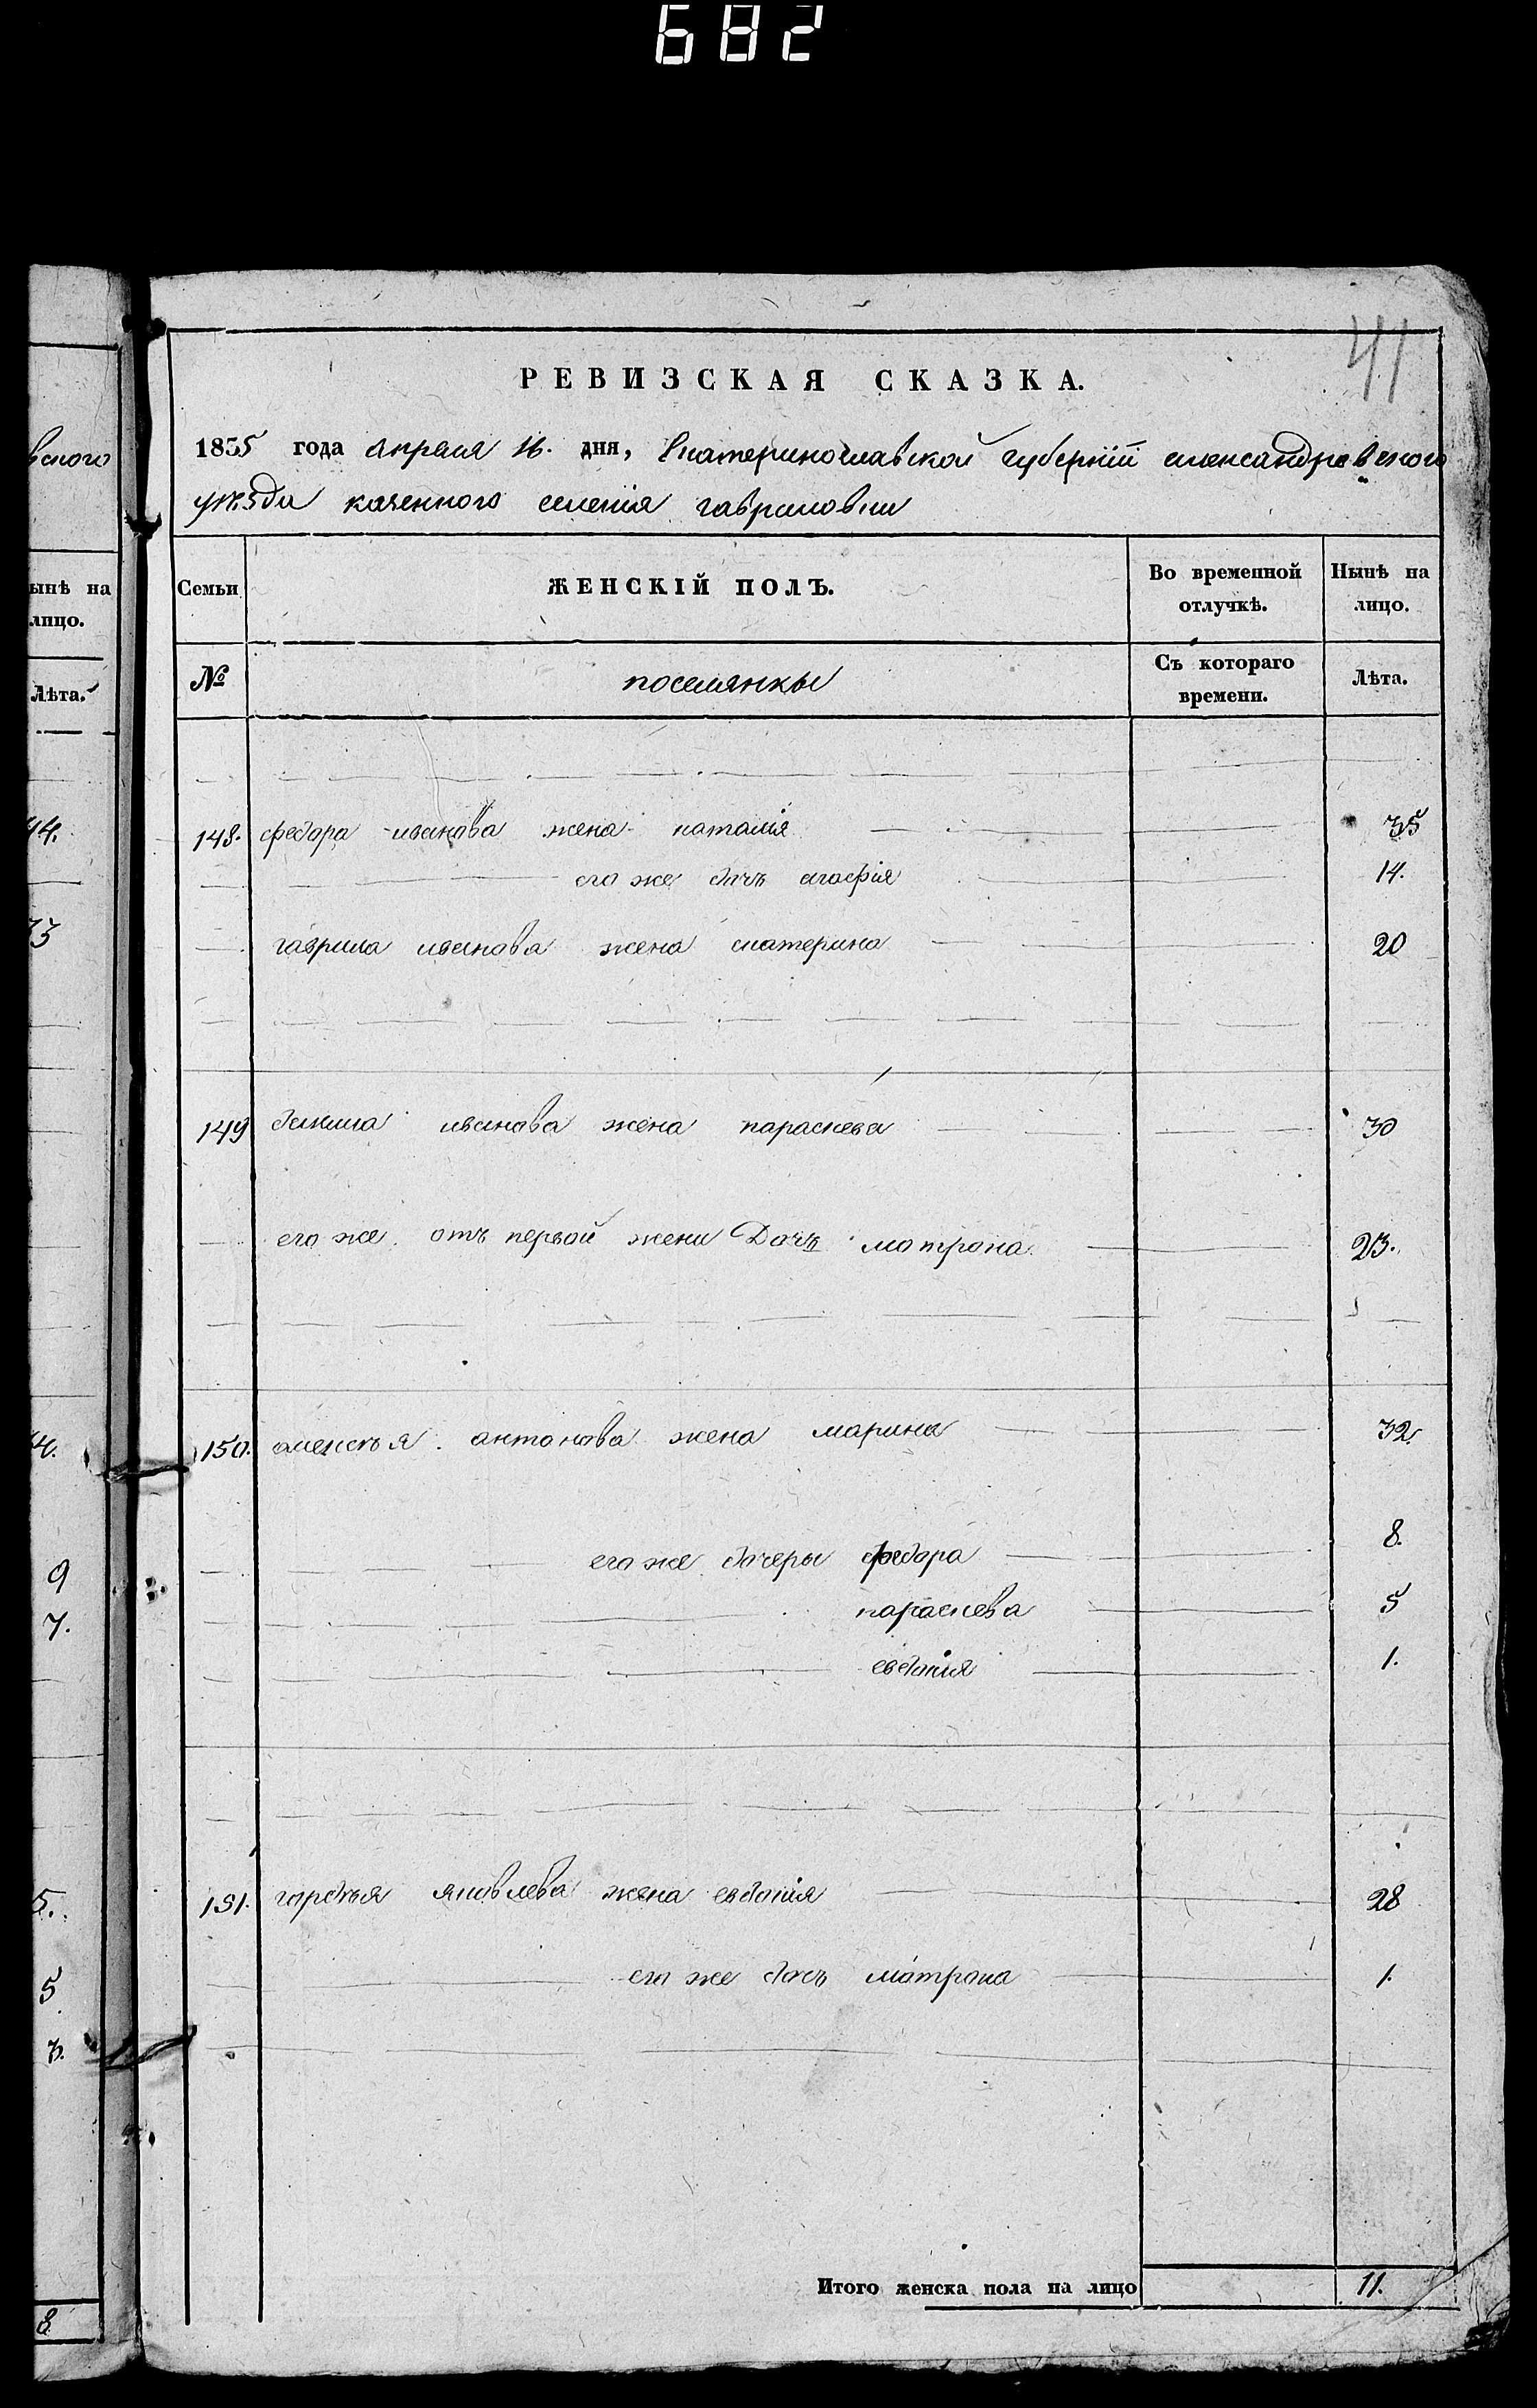 682
41
РЕВИЗСКАЯ СКАЗКА.
1835 года апреля 16. дня, Екатеринославской губерніи александровского
уѣзда казенного селенія гавриловки
Семьи ЖЕНСКІЙ ПОЛЪ. Во временной отлучкѣ. Нынѣ на лицо.
№ поселянкы Съ котораго времени. Лѣта.
148. федора иванова жена наталія 35
его же дочь агафія 14.
гаврила иванова жена катерина 20
149 иванова жена параскева 30
его же отъ первой жени Дочь мотрона 23.
150. алексѣя антонова жена марина 32.
его же дочеры федора 8.
параскева 5
евдокія 1.
151. гордѣя яковлева жена евдокія 28
его же дочь матрона 1.
Итого женска пола на лицо 11.
вского
ынѣ на
лицо.
Лѣта.
44.
33
4.
9
7.
5.
5
3.
8